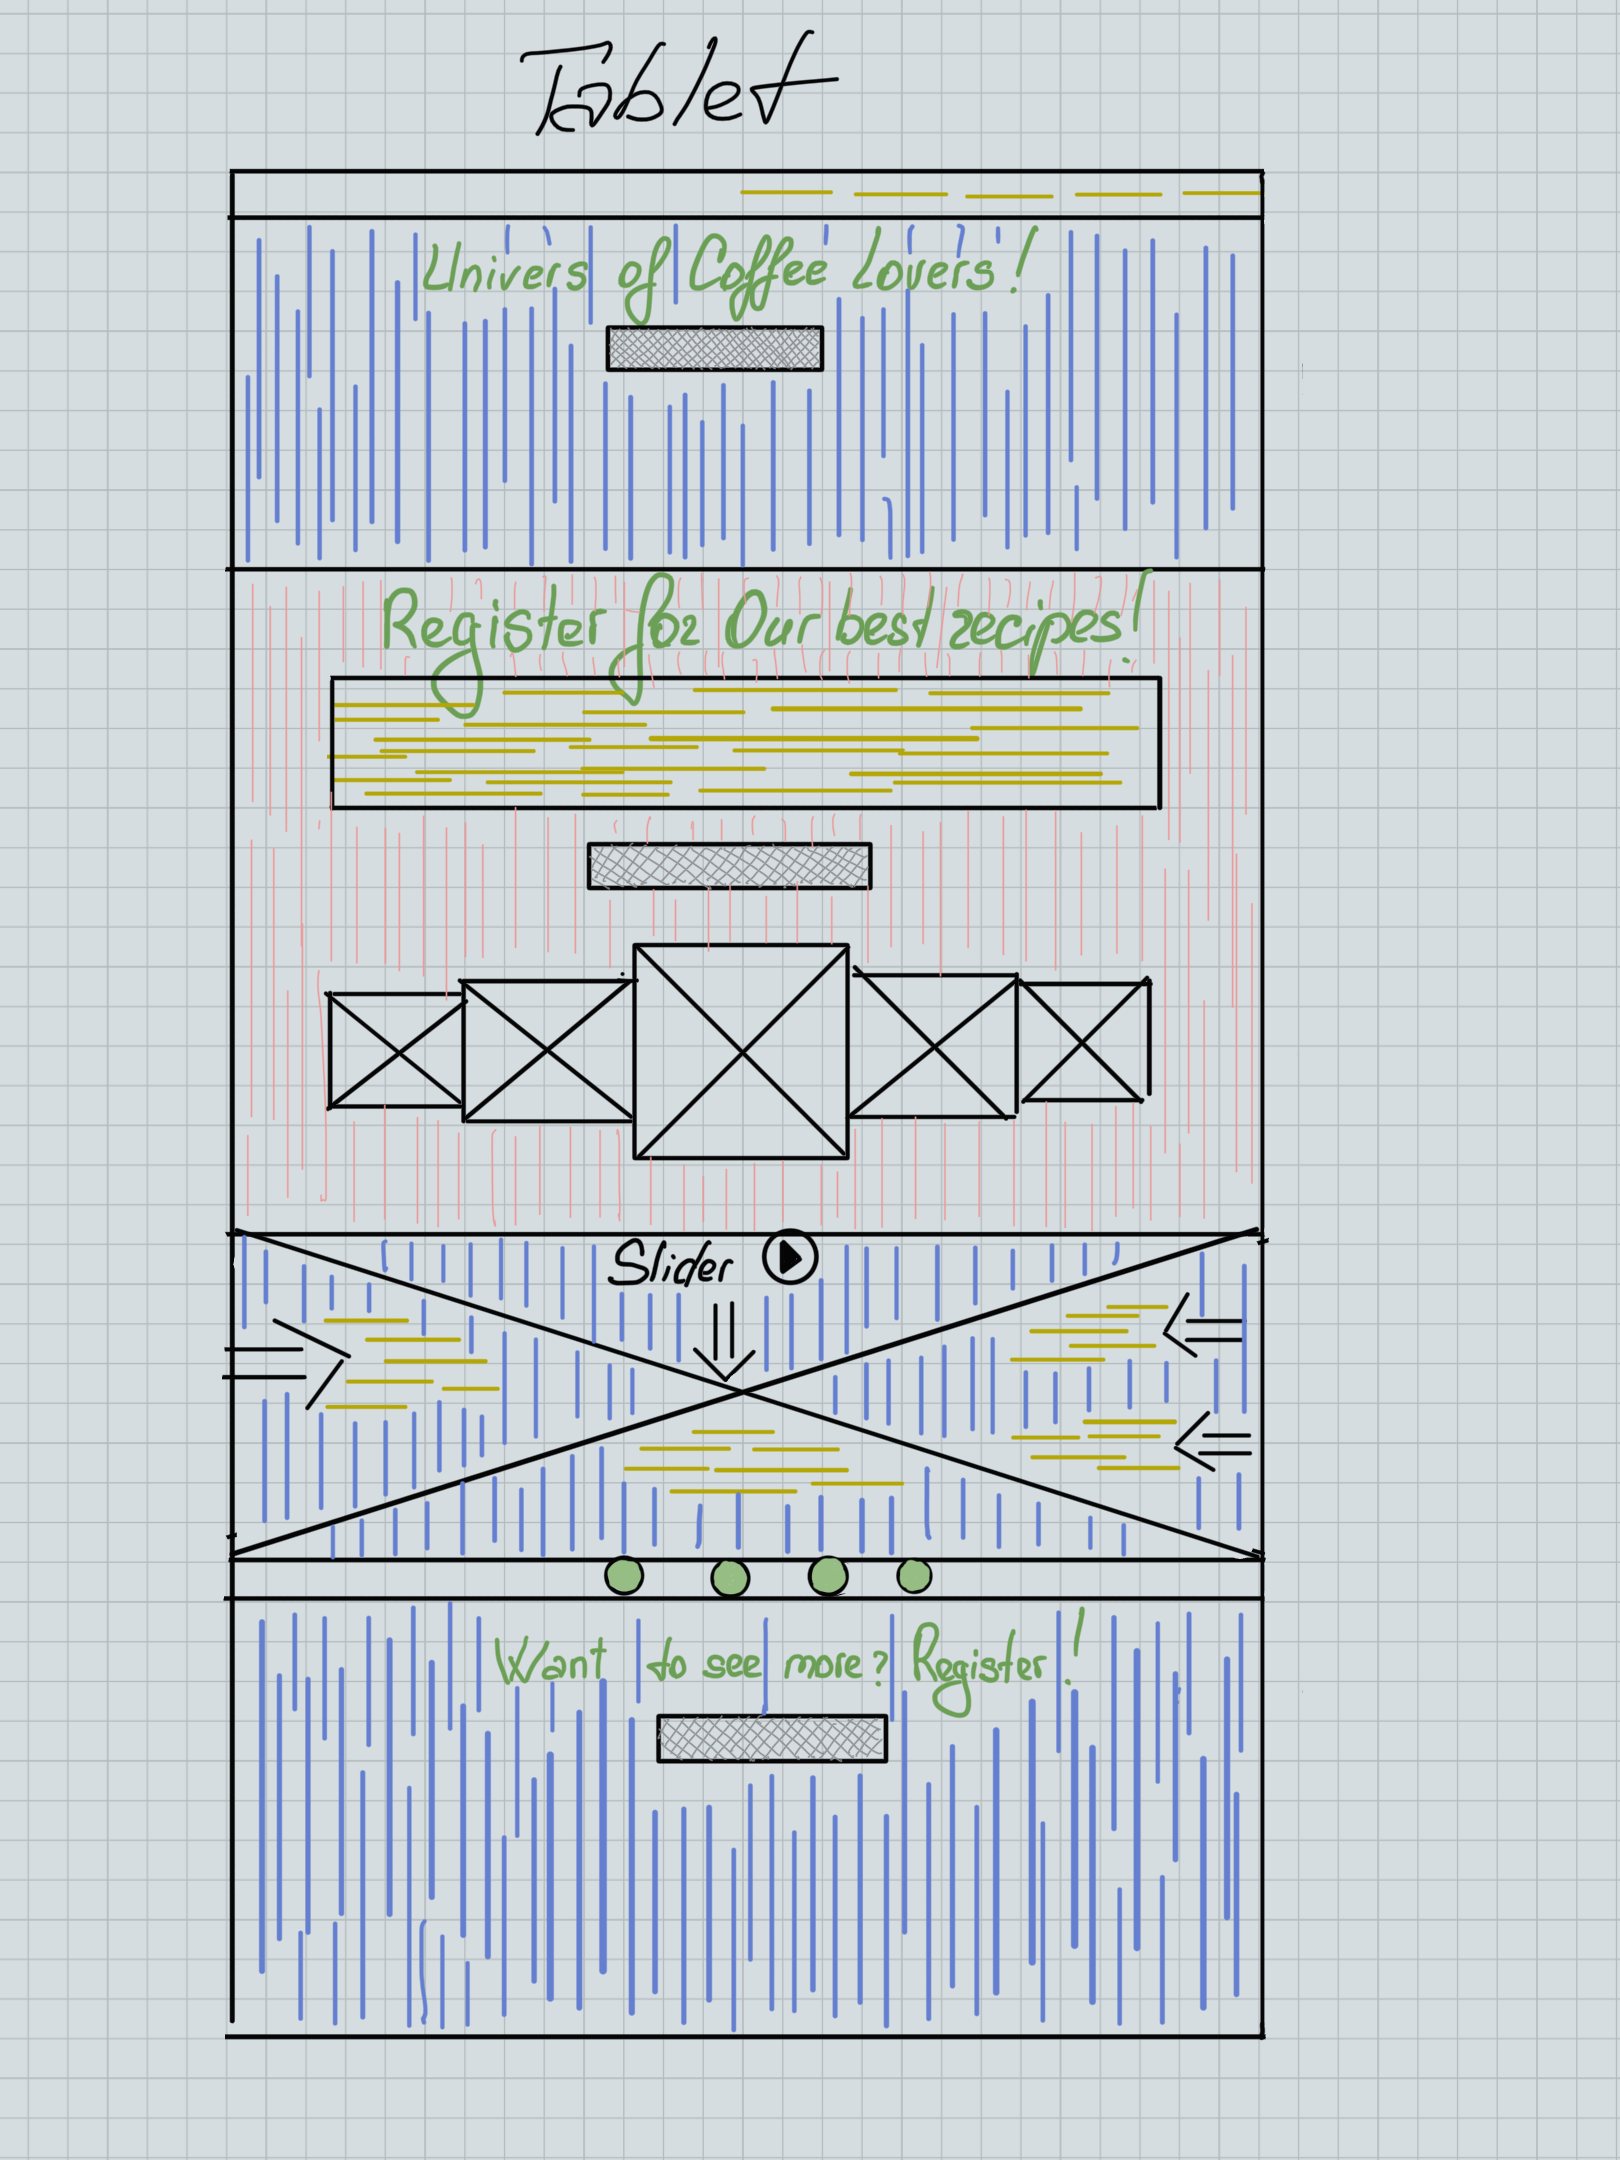 Tablet
Univers of Coffee Lovers!
Register for Our best recipes!
Slider
Want to see more? Register!